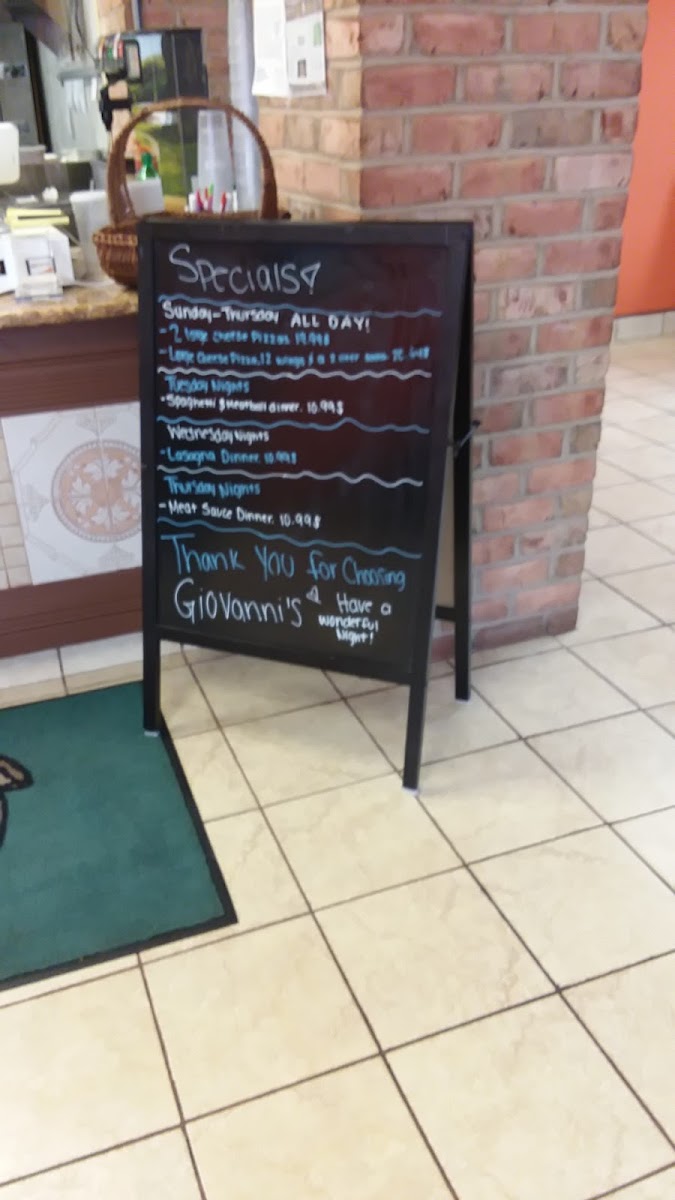 Specials!
Sunday-Thursday ALL DAY!
- 2 large cheese Pizzas. 19.99$
- Large Cheese Pizza, 12 wings, & a 2 liter
Tuesday Nights
- Spaghetti & Meatball dinner. 10.99$
Wednesday Nights
- Lasagna Dinner. 10.99$
Thursday Nights
- Meat Sauce Dinner. 10.99$
Thank You for Choosing
Giovanni's
Have a
wonderful
Night!